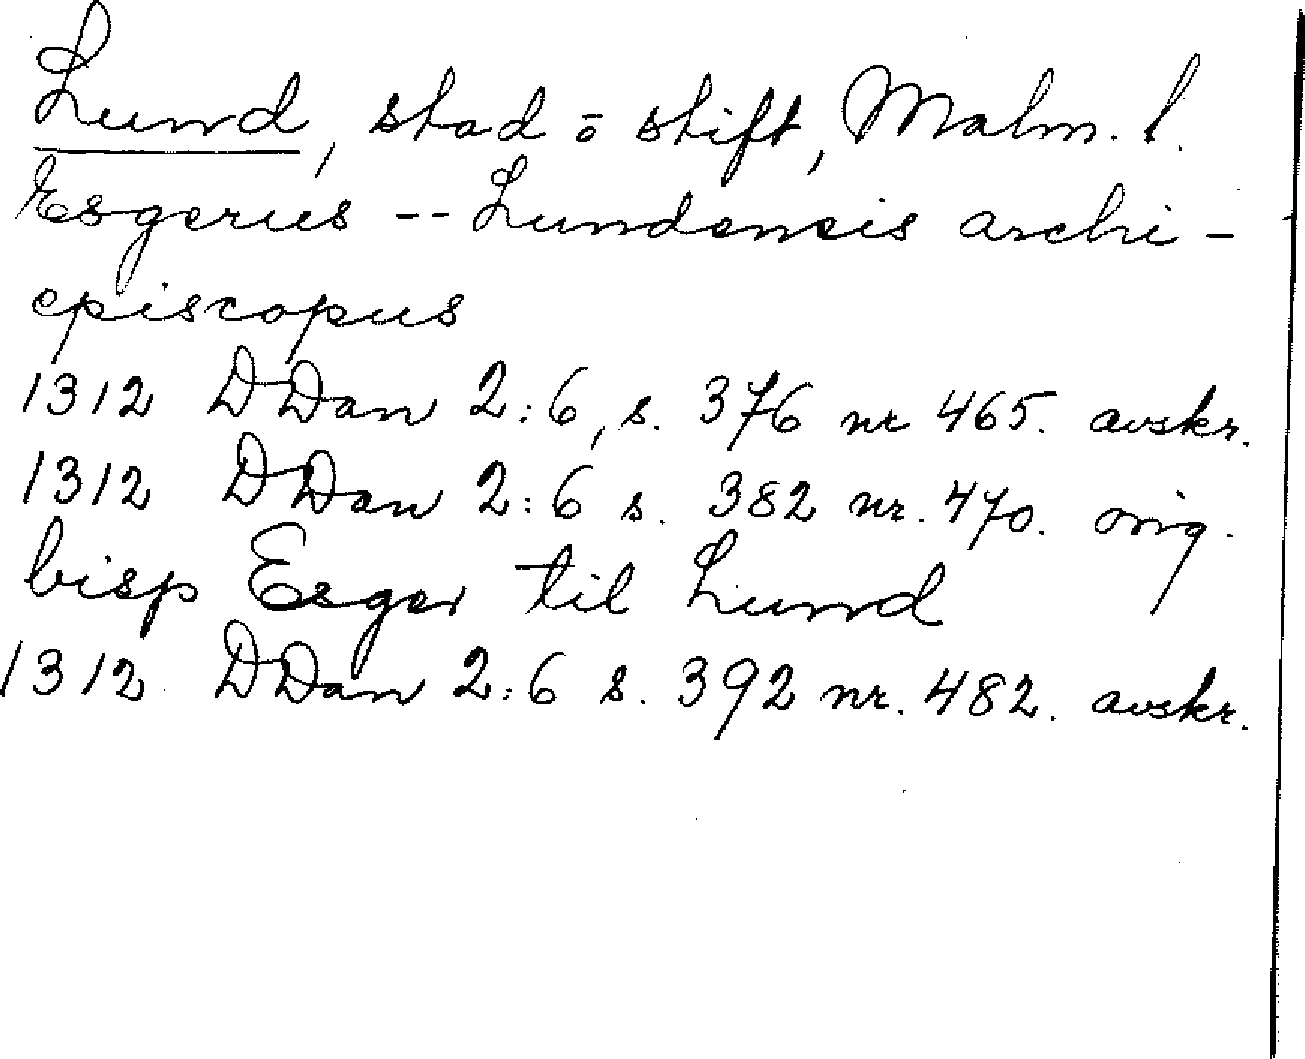 Lund, stad o stift, Malm. l.
Esgerus -- Lundensis archi-
episcopus
1312 DDan 2:6, s. 376 nr 465. avskr.
1312 DDan 2:6 s. 382 nr. 470. orig.
bisp Esger til Lund
1312 DDan 2:6 s. 392 nr. 482. avskr.